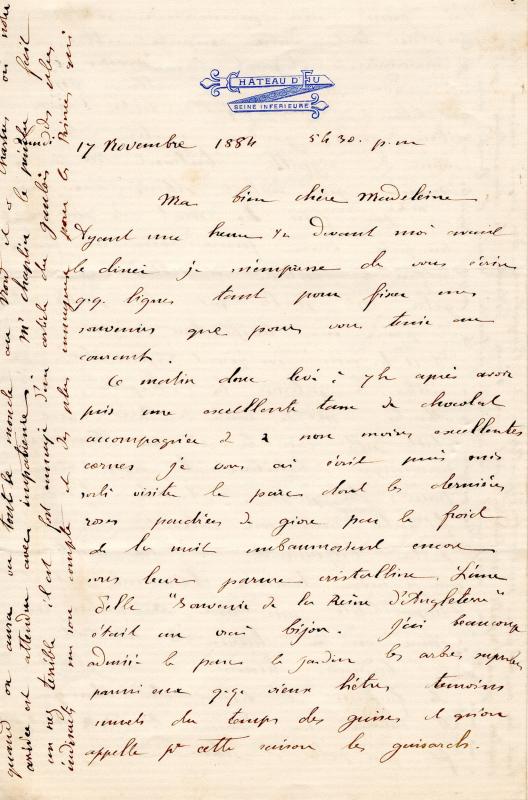 CHATEAU D'EU
SEINE INFERIEURE
17 Novembre 1884 5h 30. p.m
Ma bien chère Madeleine
Ayant une heure ½ devant moi avant
le diner je m'empresse de vous écrire
q.q. lignes tant pour fixer mes
souvenirs que pour vous tenir au
courant.
Ce matin donc levé à 7h après avoir
pris une excellente tasse de chocolat
accompagnée de 2 non moins excellentes
cornes je vous ai écrit puis suis
sorti visiter le parc dont les dernières
roses poudrées de givre par le froid
de la nuit embaumaient encore
sous leur parure cristalline. L'une
d'elle "Souvenir de la Reine d'Angleterre"
était un vrai bijou. J'ai beaucoup
admiré le parc le jardin les arbres superbes
parmi eux q.q. vieux hêtres temoins
muets du temps des guises et qu'on
appelle pr cette raison les guisards.
quand on aura vu tout le monde au
arrivée est attendue avec impatience. Mr Chaplin le peintre
un nez terrible il est fort ennuyé d'un article du gaulois des plus
indiscrets sur son compte et des plus ennuyeux pour les Princes qui